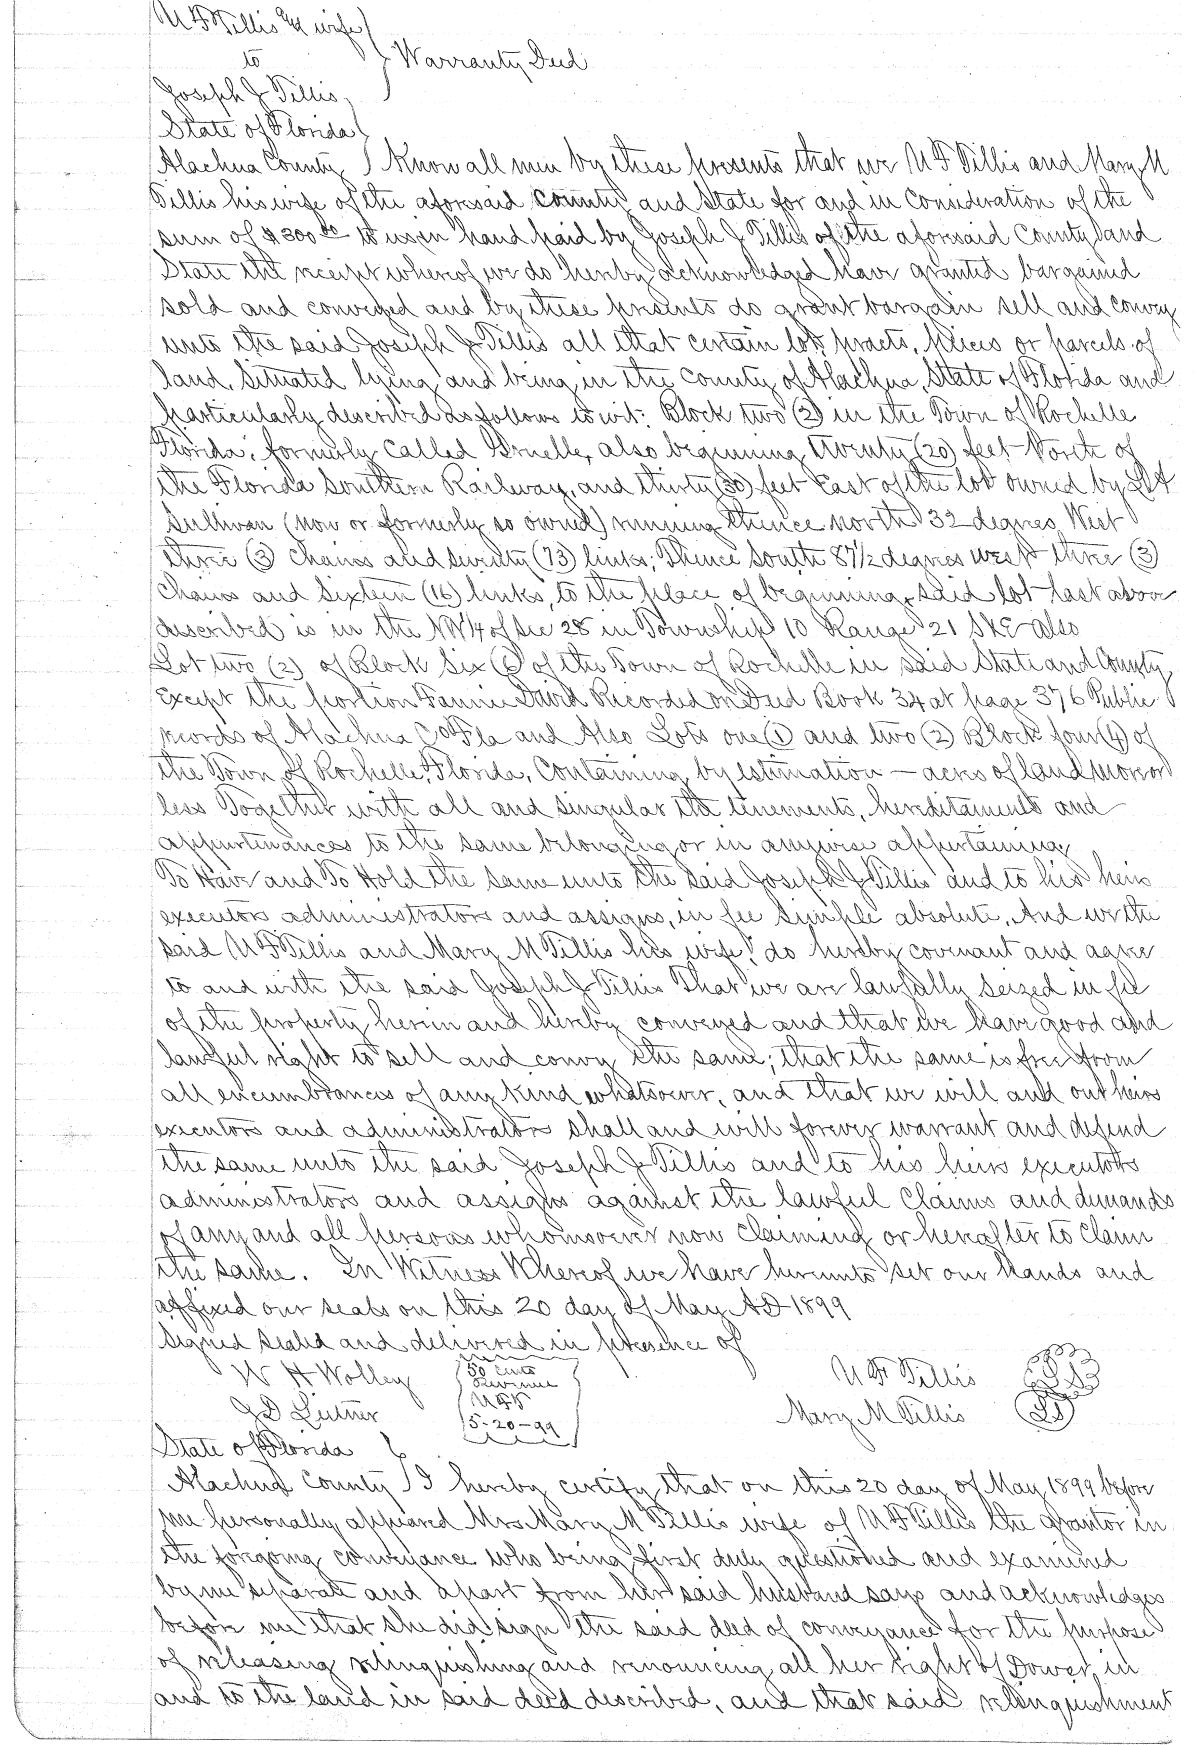 U F Tillis and wife
to
Warranty Deed
Joseph J Tillis
State of Florida
Alachua County Know all men by these presents that we U F Tillis and Mary M
Tillis his wife of the aforesaid County and State for and in Consideration of the
sum of $300 00 to us in hand paid by Joseph J Tillis of the aforesaid County and
State the receipt whereof we do hereby acknowledged have granted bargained
sold and conveyed and by these presents do grant bargain sell and convey
unto the said Joseph J Tillis all that certain lot, tracts, pieces or parcels of
land, situated lying and being in the county of Alachua, State of Florida and
particularly described as follows to wit: Block two (2) in the Town of Rochelle
Florida, formerly called Gruelle, also beginning twenty (20) feet North of
the Florida Southern Railway, and thirty (30) feet East of the lot owned by
Sullivan (now or formerly so owned) running thence north 32 degrees West
three (3) chains and seventy (73) links; Thence South 87 1/2 degrees west three (3)
chains and Sixteen (16) links, to the place of beginning, said lot last above
described is in the NW 1/4 of Sec 28 in Township 10 Range 21 S&E also
Lot two (2) of Block Six (6) of the Town of Rochelle in said State and County
Except the portion Fannie David Recorded on Deed Book 34 at page 376 Public
records of Alachua Co Fla and Also Lots one (1) and two (2) Block four (4) of
the Town of Rochelle, Florida, Containing by estimation — acres of land more or
less Together with all and singular the tenements, hereditaments and
appurtenances to the same belonging or in anywise appertaining
To Have and To Hold the same unto the said Joseph J Tillis and to his heirs
executors administrators and assigns, in fee simple absolute, And we the
said U F Tillis and Mary M Tillis his wife, do hereby covenant and agree
to and with the said Joseph J Tillis That we are lawfully seized in fee
of the property herein and hereby conveyed and that we have good and
lawful right to sell and convey the same; that the same is free from
all encumbrances of any kind whatsoever, and that we will and out heirs
executors and administrators shall and will forever warrant and defend
the same unto the said Joseph J Tillis and to his heirs executors
administrators and assigns against the lawful Claims and demands
of any and all persons whomsoever now claiming or hereafter to claim
the same. In Witness Whereof we have hereunto set our hands and
affixed our seals on this 20 day of May AD 1899
Signed sealed and delivered in presence of
W H Wolley 50 cents U F Tillis
Revenue
J D Leitner UFT Mary M Tillis LS
5-20-99
State of Florida
Alachua County I hereby certify that on this 20 day of May 1899 before
me personally appeared Mrs Mary M Tillis wife of U F Tillis the grantor in
the foregoing conveyance who being first duly questioned and examined
by me separate and apart from her said husband says and acknowledges
before me that she did sign the said deed of conveyance for the purpose
of releasing relinquishing and renouncing all her right of Dower, in
and to the land in said deed described, and that said relinquishment